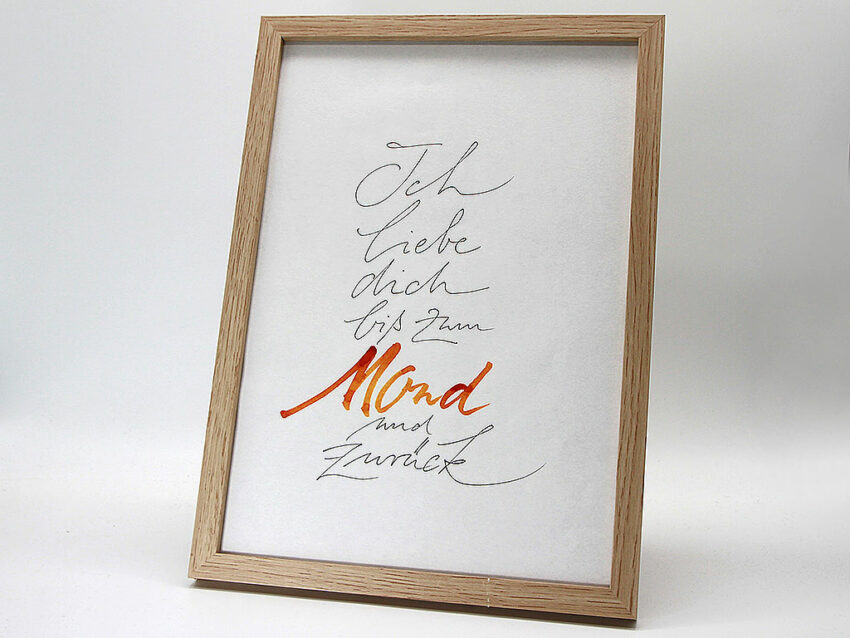 Ich
liebe
dich
biß zum
Mond
und
zurück